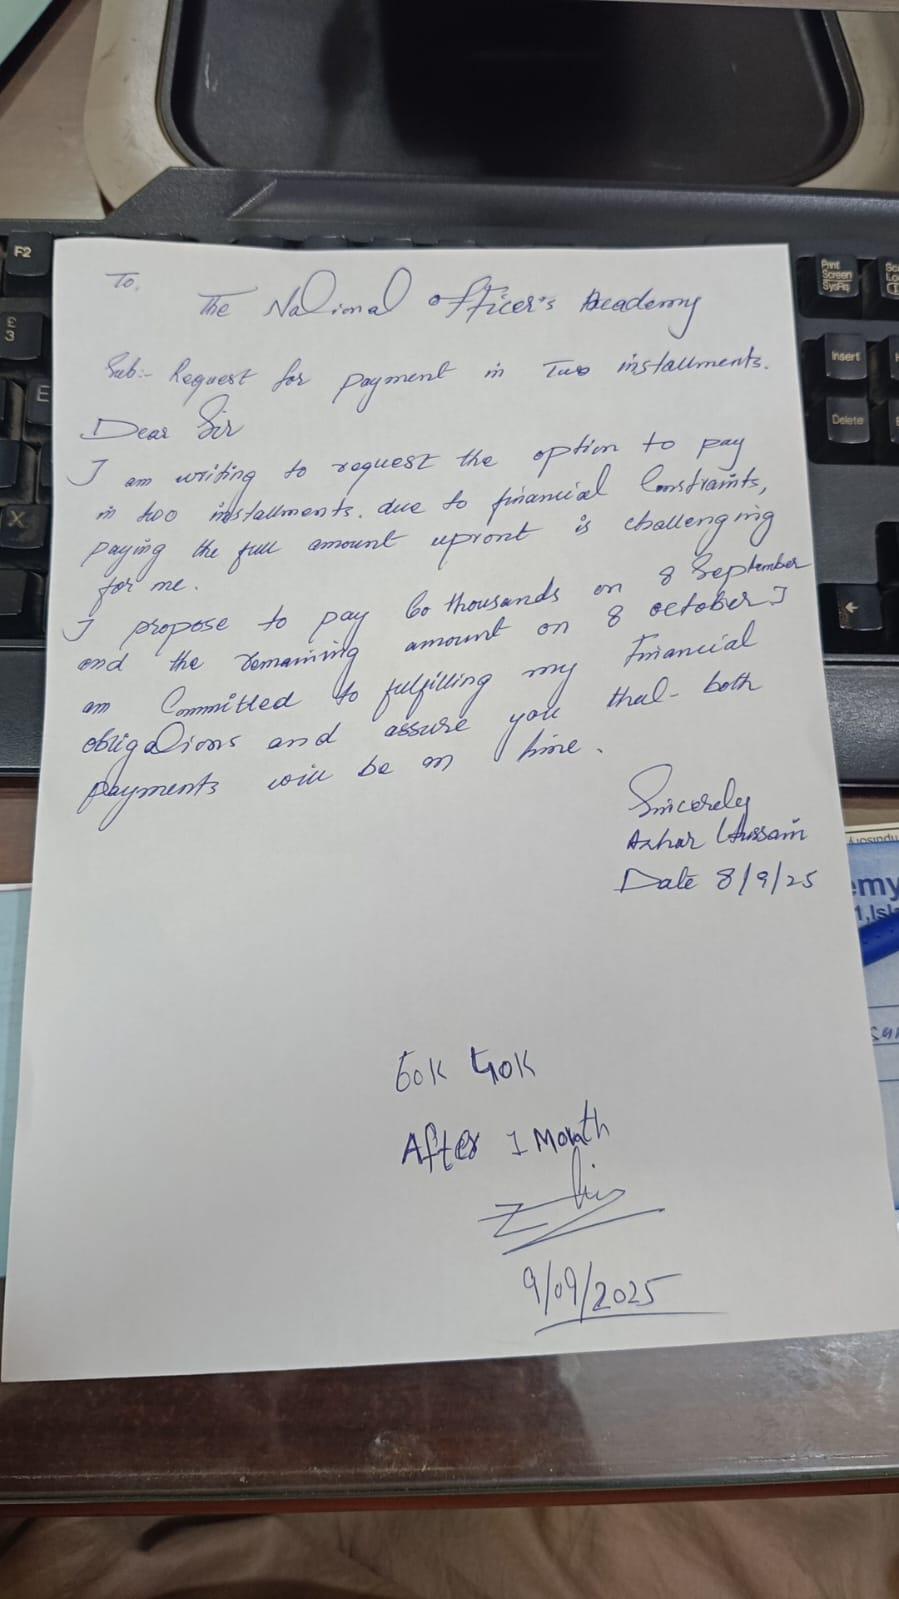 To,
The National Officer's Academy
Sub:- Request for payment in Two installments.
Dear Sir
I am writing to request the option to pay
in two installments. due to financial Constraints,
paying the full amount upront is challenging
for me.
I propose to pay 60 thousands on 8 September
and the remaining amount on 8 october I
am Committed to fulfilling my Financial
obligations and assure you that both
payments will be on time.
Sincerely
Azhar Hussain
Date 8/9/25
60K 40K
After 1 Month
9/09/2025
F2
£
3
E
X
Print
Screen
SysRq
Insert
Delete
emy
1,Isl